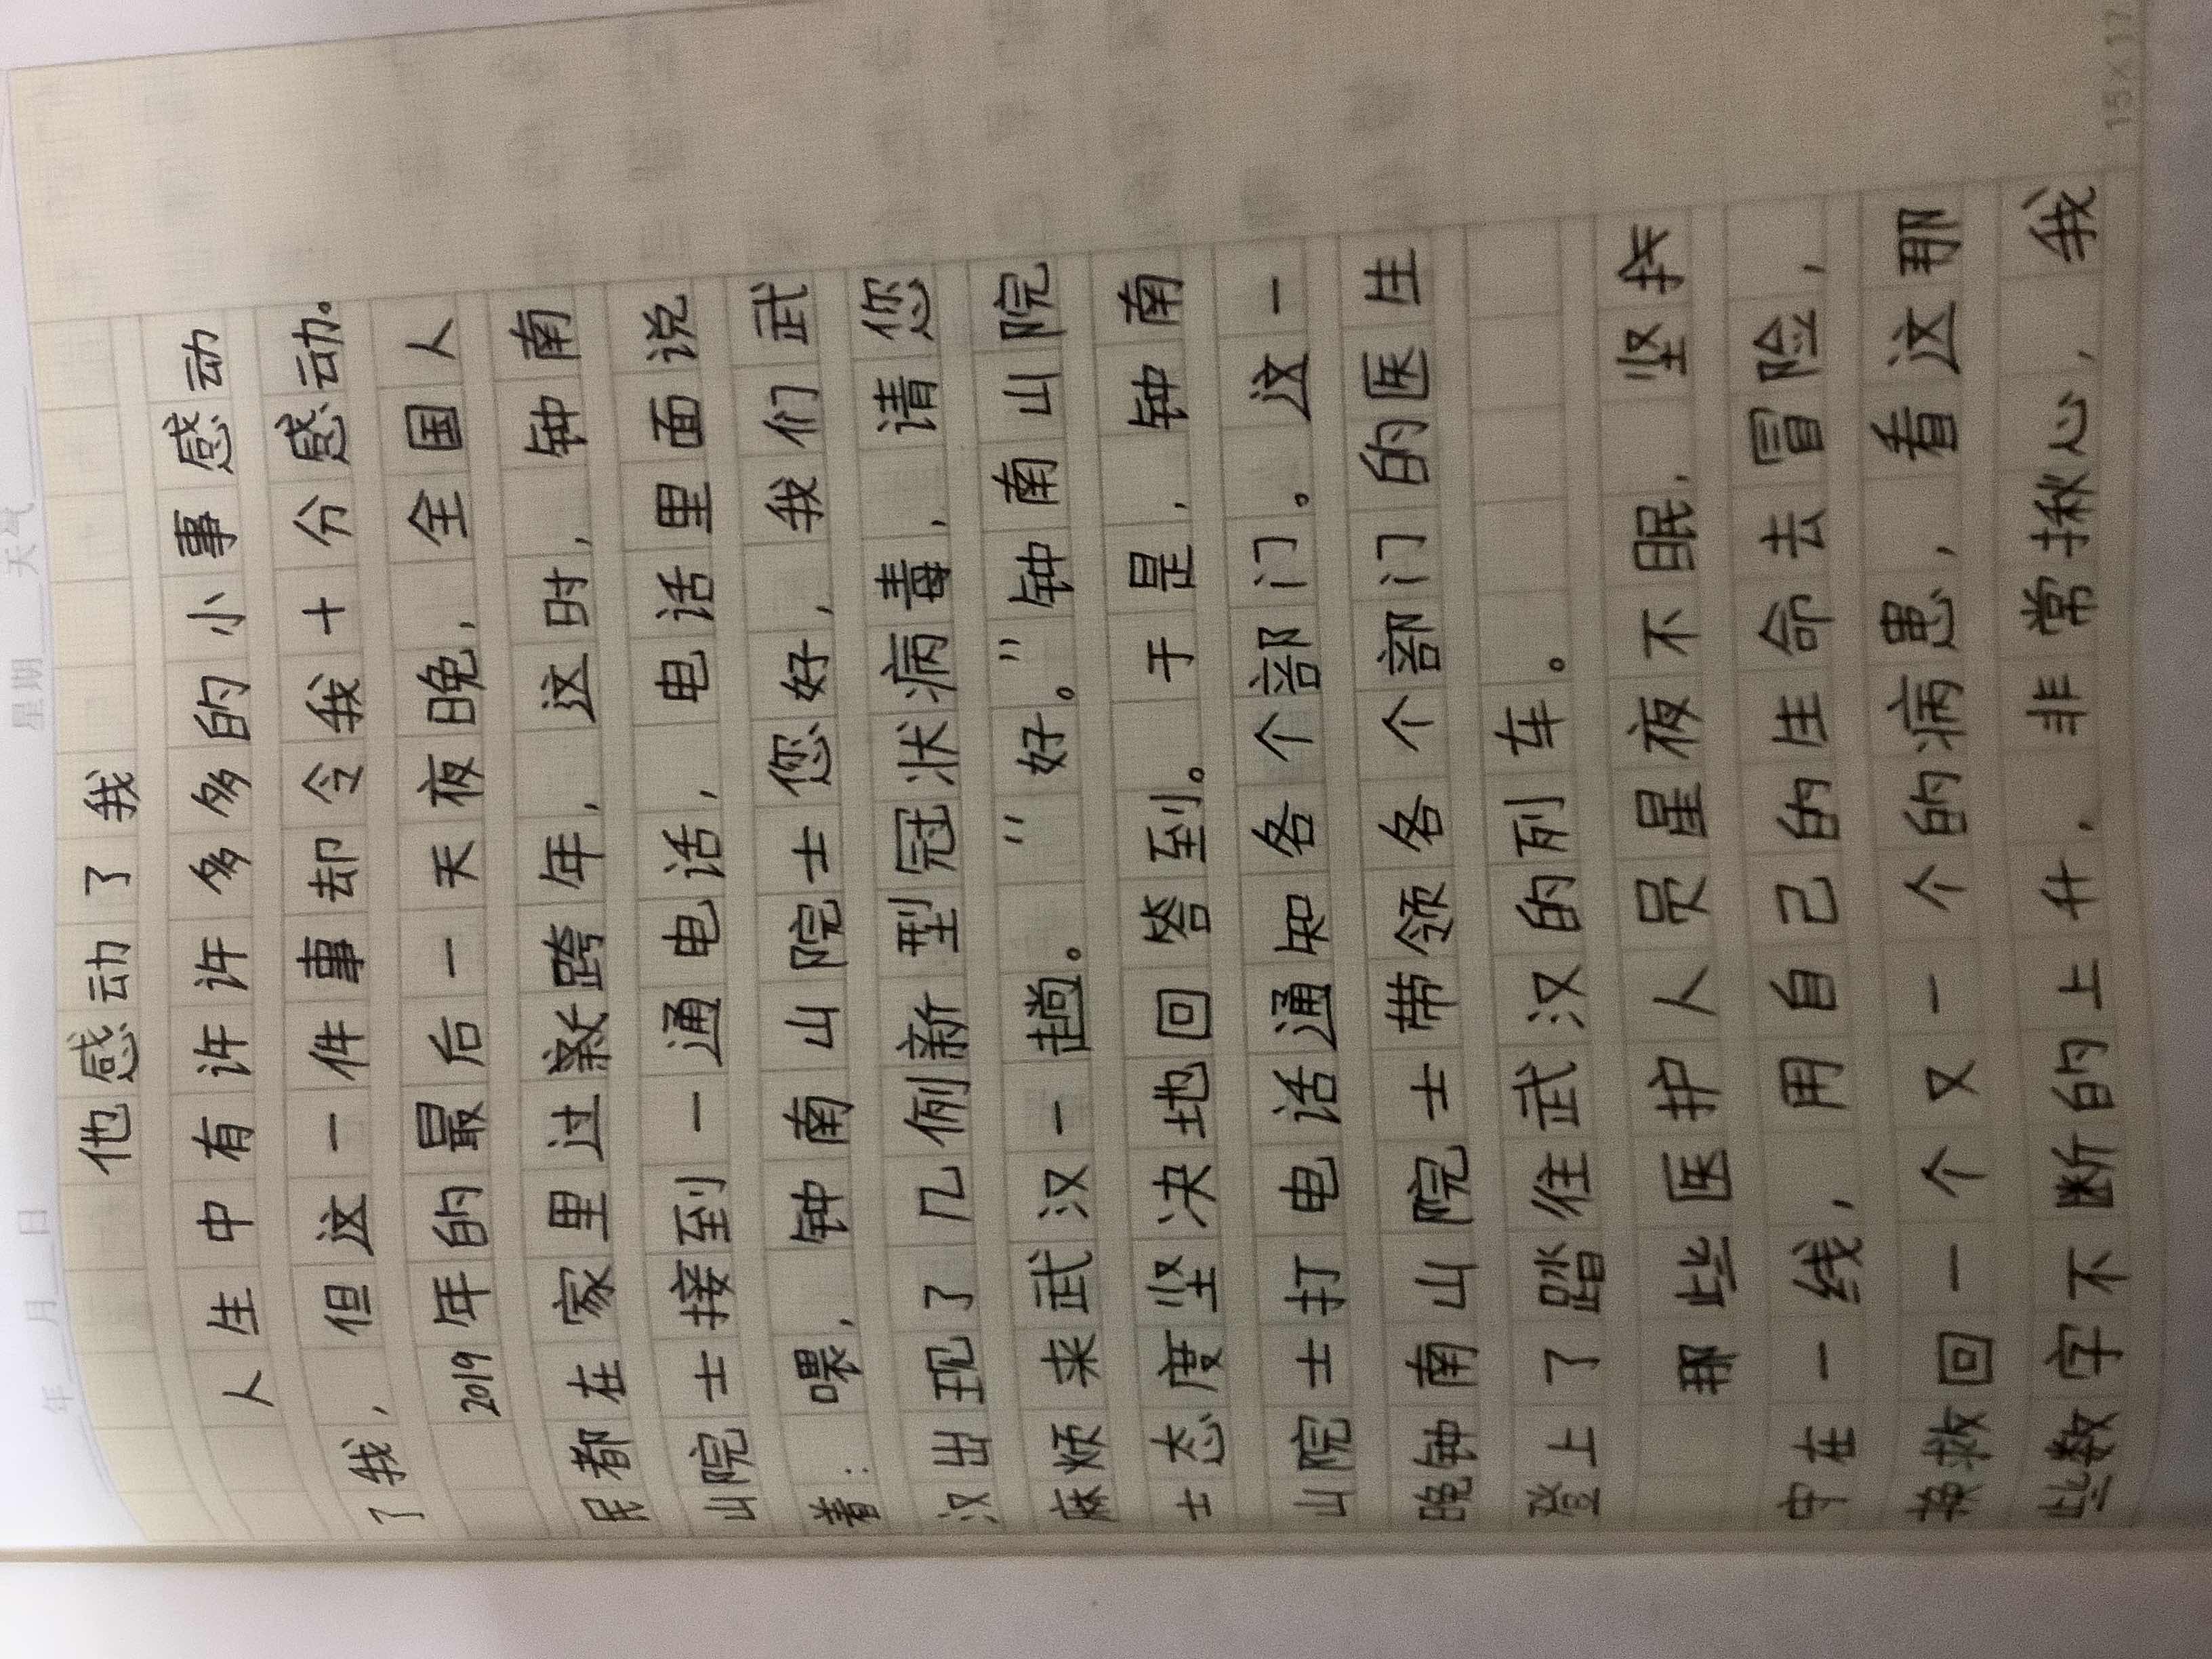 年 月 日 星期 天气
他感动了我
人生中有许许多多的小事感动
了我，但这一件事却令我十分感动。
2019年的最后一天夜晚，全国人
民都在家里过跨年，这时，钟南
山院士接到一通电话，电话里面说
着：喂，钟南山院士您好，我们武
汉出现了几例新型冠状病毒，请您
麻烦来武汉一趟。"好。"钟南山院
士态度坚决地回答到。于是，钟南
山院士打电话通知各个部门。这一
晚钟南山院士带领各个部门的医生
登上了踏往武汉的列车。
那些医护人员星夜不眠，坚持
在一线，用自己的生命去冒险，
换救回一个又一个的病患，看这那
些数字不断的上升，非常揪心，我
15×17